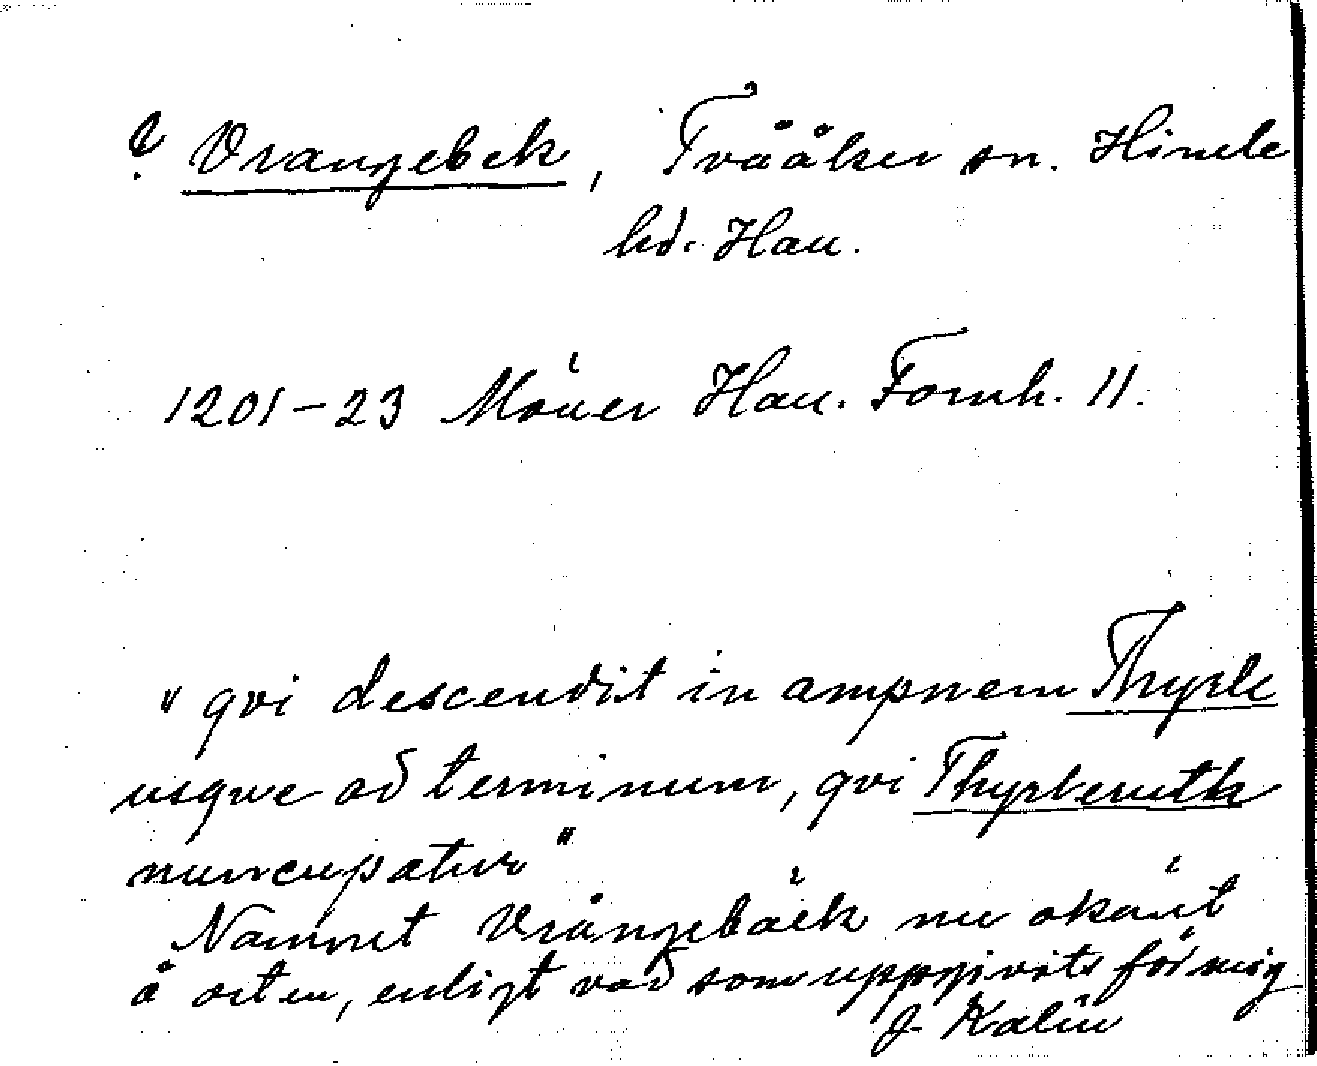 ? Vrangebek, Tvååker sn. Himle
hd. Hall.
1201-23 Möller Hall. Fornh. II.
" qvi descendit in ampnem Thyrle
usqve ad terminum, qvi Thyrlemuth
nuncupatur"
Namnet Vrångebäck nu okänt
å orten, enligt vad som uppgivits för mig
J Kalén